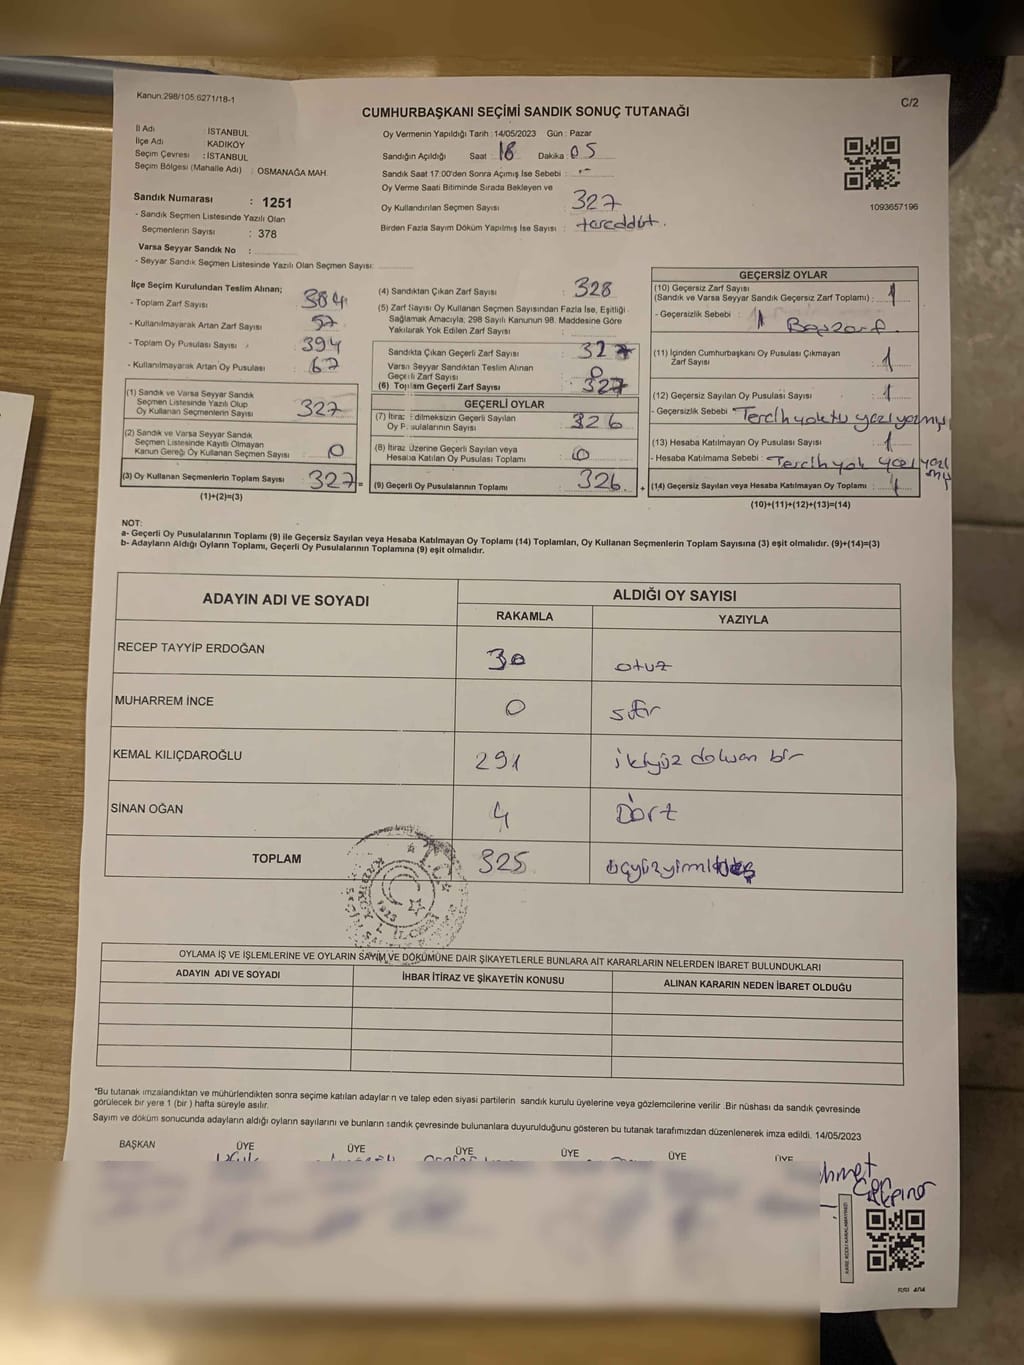 Kanun:298/105,6271/18-1
CUMHURBAŞKANI SEÇİMİ SANDIK SONUÇ TUTANAĞI
C/2
İl Adı : İSTANBUL
İlçe Adı : KADIKÖY
Seçim Çevresi : İSTANBUL
Seçim Bölgesi (Mahalle Adı) : OSMANAĞA MAH.
Sandık Numarası : 1251
- Sandık Seçmen Listesinde Yazılı Olan
Seçmenlerin Sayısı : 378
Varsa Seyyar Sandık No :
- Seyyar Sandık Seçmen Listesinde Yazılı Olan Seçmen Sayısı:
Oy Vermenin Yapıldığı Tarih : 14/05/2023 Gün : Pazar
Sandığın Açıldığı Saat : 18 Dakika : 05
Sandık Saat 17:00'den Sonra Açımış İse Sebebi : -
Oy Verme Saati Bitiminde Sırada Bekleyen ve
Oy Kullandırılan Seçmen Sayısı : 327
Birden Fazla Sayım Döküm Yapılmış İse Sayısı : tereddüt.
1093657196
İlçe Seçim Kurulundan Teslim Alınan;
- Toplam Zarf Sayısı : 384
- Kullanılmayarak Artan Zarf Sayısı : 57
- Toplam Oy Pusulası Sayısı : 394
- Kullanılmayarak Artan Oy Pusulası : 67
(1) Sandık ve Varsa Seyyar Sandık
Seçmen Listesinde Yazılı Olup
Oy Kullanan Seçmenlerin Sayısı : 327
(2) Sandık ve Varsa Seyyar Sandık
Seçmen Listesinde Kayıtlı Olmayan
Kanun Gereği Oy Kullanan Seçmen Sayısı : 0
(3) Oy Kullanan Seçmenlerin Toplam Sayısı : 327 =
(1)+(2)=(3)
(4) Sandıktan Çıkan Zarf Sayısı : 328
(5) Zarf Sayısı Oy Kullanan Seçmen Sayısından Fazla İse, Eşitliği
Sağlamak Amacıyla, 298 Sayılı Kanunun 98. Maddesine Göre
Yakılarak Yok Edilen Zarf Sayısı :
Sandıkta Çıkan Geçerli Zarf Sayısı : 327
Varsa Seyyar Sandıktan Teslim Alınan
Geçerli Zarf Sayısı : 0
(6) Toplam Geçerli Zarf Sayısı : 327
GEÇERLİ OYLAR
(7) İtiraz Edilmeksizin Geçerli Sayılan
Oy Pusulalarının Sayısı : 326
(8) İtiraz Üzerine Geçerli Sayılan veya
Hesaba Katılan Oy Pusulası Toplamı : 0
(9) Geçerli Oy Pusulalarının Toplamı : 326 +
GEÇERSİZ OYLAR
(10) Geçersiz Zarf Sayısı
(Sandık ve Varsa Seyyar Sandık Geçersiz Zarf Toplamı) : 1
- Geçersizlik Sebebi : 1 Boş zarf.
(11) İçinden Cumhurbaşkanı Oy Pusulası Çıkmayan
Zarf Sayısı : 1
(12) Geçersiz Sayılan Oy Pusulası Sayısı : 1
- Geçersizlik Sebebi : Tercih yoktu
(13) Hesaba Katılmayan Oy Pusulası Sayısı : 1
- Hesaba Katılmama Sebebi : Tercih yok
(14) Geçersiz Sayılan veya Hesaba Katılmayan Oy Toplamı : 1
(10)+(11)+(12)+(13)=(14)
NOT:
a- Geçerli Oy Pusulalarının Toplamı (9) ile Geçersiz Sayılan veya Hesaba Katılmayan Oy Toplamı (14) Toplamları, Oy Kullanan Seçmenlerin Toplam Sayısına (3) eşit olmalıdır. (9)+(14)=(3)
b- Adayların Aldığı Oyların Toplamı, Geçerli Oy Pusulalarının Toplamına (9) eşit olmalıdır.
ADAYIN ADI VE SOYADI
ALDIĞI OY SAYISI
RAKAMLA YAZIYLA
RECEP TAYYİP ERDOĞAN 30 otuz
MUHARREM İNCE 0 sıfır
KEMAL KILIÇDAROĞLU 291 ikiyüz doksan bir
SİNAN OĞAN 4 Dört
TOPLAM 325 üçyüzyirmibeş
OYLAMA İŞ VE İŞLEMLERİNE VE OYLARIN SAYIM VE DÖKÜMÜNE DAİR ŞİKAYETLERLE BUNLARA AİT KARARLARIN NELERDEN İBARET BULUNDUKLARI
ADAYIN ADI VE SOYADI İHBAR İTİRAZ VE ŞİKAYETİN KONUSU ALINAN KARARIN NEDEN İBARET OLDUĞU
*Bu tutanak imzalandıktan ve mühürlendikten sonra seçime katılan adayların ve talep eden siyasi partilerin sandık kurulu üyelerine veya gözlemcilerine verilir. Bir nüshası da sandık çevresinde
görülecek bir yere 1 (bir) hafta süreyle asılır.
Sayım ve döküm sonucunda adayların aldığı oyların sayılarını ve bunların sandık çevresinde bulunanlara duyurulduğunu gösteren bu tutanak tarafımızdan düzenlenerek imza edildi. 14/05/2023
BAŞKAN ÜYE ÜYE ÜYE ÜYE ÜYE ÜYE